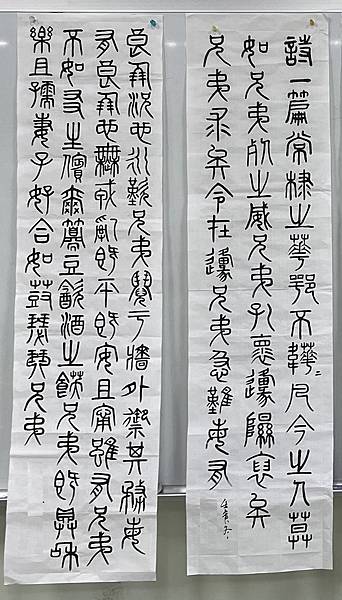 詩一篇常棣之華鄂不韡=凡今之人莫
如兄弟死之威兄弟孔懷邍隰裒矣
兄弟求矣令在邍兄弟急難每有
良朋況也永歎兄弟鬩于牆外禦其務每
有良朋也無戎亂既平既安且寧雖有兄弟
不如友生儐爾籩豆飲酒之飫兄弟既具和
樂且孺妻子好合如鼓瑟琴兄弟